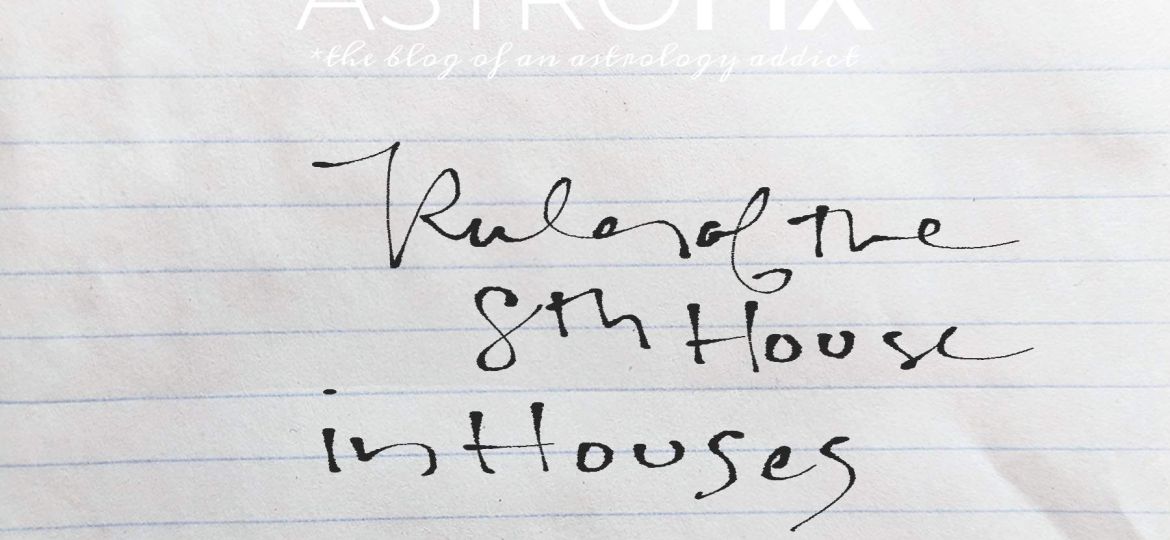 ASTROFIX
*the blog of an astrology addict
Ruler of the
8th House
in Houses